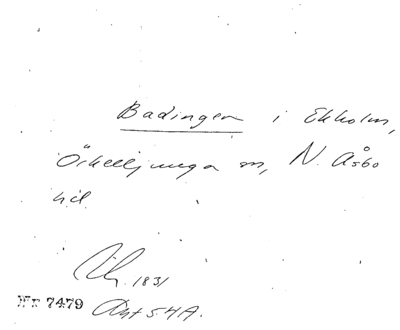 Badingen i Ekholm,
Örkelljunga sn, N. Åsbo
hd.
1831
Wr 7479 Akt 54A.